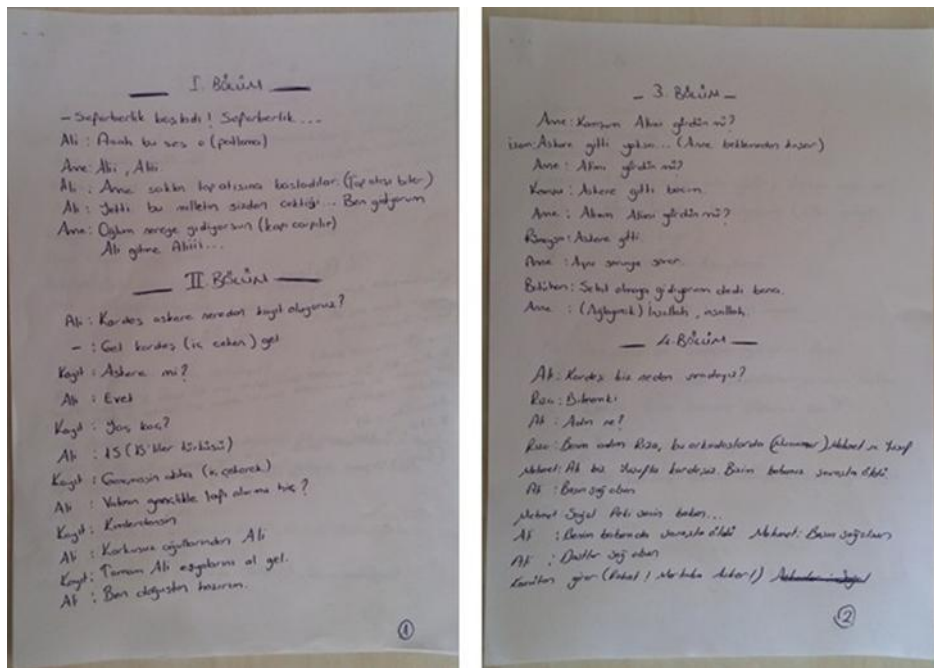 I. BÖLÜM
- Seferberlik başladı! Seferberlik...
Ali : Anah bu ses o (patlama)
Anne: Ali, Aliii.
Ali : Anne sakin top atışına başladılar. (Top atışı biter)
Ali : Yetti bu milletin sizden çektiği... Ben gidiyorum
Anne: Oğlum nereye gidiyorsun (kapı çarpılır)
Ali gitme Aliiii...
II. BÖLÜM
Ali : Kardeş askere nereden kayıt oluyoruz?
- : Gel kardeş (iç çeken) gel
Kayıt : Askere mi?
Ali : Evet
Kayıt : Yaş kaç?
Ali : 15 (15'liler türküsü)
Kayıt : daha (iç çekerek)
Ali : Vatanın gençlikle hiç?
Kayıt : Kimlerdensin
Ali : Korkusuz oğullarından Ali
Kayıt : Tamam Ali eşyalarını al gel.
Ali : Ben doğuştan hazırım.
1
- 3. BÖLÜM -
Anne: Komşum Alimi gördün mü?
Askere gitti yoksa... (Anne beklemeden koşar)
Anne : Alimi gördün mü?
Komşu : Askere gitti bacım.
Anne : Alimi gördün mü?
Askere gitti.
Anne : sorar.
Şehit olmaya gidiyorum dedi bana.
Anne : (Ağlayarak) İnşallah, inşallah.
4. BÖLÜM
Ali : Kardeş biz neden buradayız?
Rıza : Bilmem ki
Ali : Adın ne?
Rıza : Benim adım Rıza, bu arkadaşlarda Mehmet ve Yusuf
Mehmet : Ali biz Yusufla kardeşiz. Bizim babamız savaşta öldü.
Ali : Başın sağ olsun
Mehmet : Sağol Peki senin baban...
Ali : Benim babamda savaşta öldü Mehmet: Başın sağolsun
Ali : Dostlar sağ olsun
Komutan girer (Rahat! Merhaba Asker!)
2